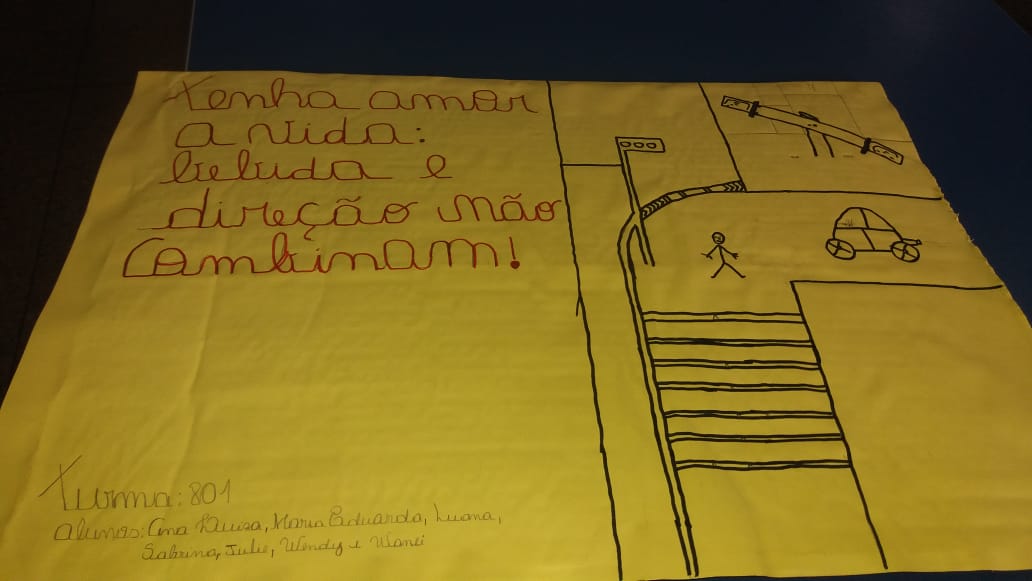 Tenha amor
a vida:
bebida e
direção não
Combinam!
Turma: 801
Alunos: Ana Luiza, Maria Eduarda, Luana,
Sabrina, Julie, Wendy e